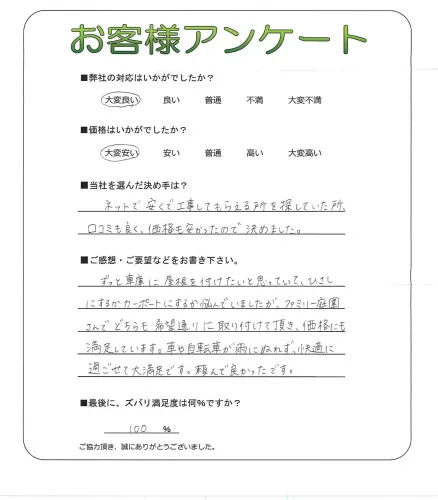 お客様アンケート
■弊社の対応はいかがでしたか？
大変良い 良い 普通 不満 大変不満
■価格はいかがでしたか？
大変安い 安い 普通 高い 大変高い
■当社を選んだ決め手は？
ネットで安くで工事してもらえる所を探していた所、
口コミも良く、価格も安かったので決めました。
■ご感想・ご要望などをお書き下さい。
ずっと車庫に屋根を付けたいと思っていて、ひさし
にするかカーポートにするか悩んでいましたが、ファミリー庭園
さんでどちらも希望通りに取り付けて頂き、価格にも
満足しています。車や自転車が雨にぬれず、快適に
過ごせて大満足です。頼んで良かったです。
■最後に、ズバリ満足度は何%ですか？
100 %
ご協力頂き、誠にありがとうございました。